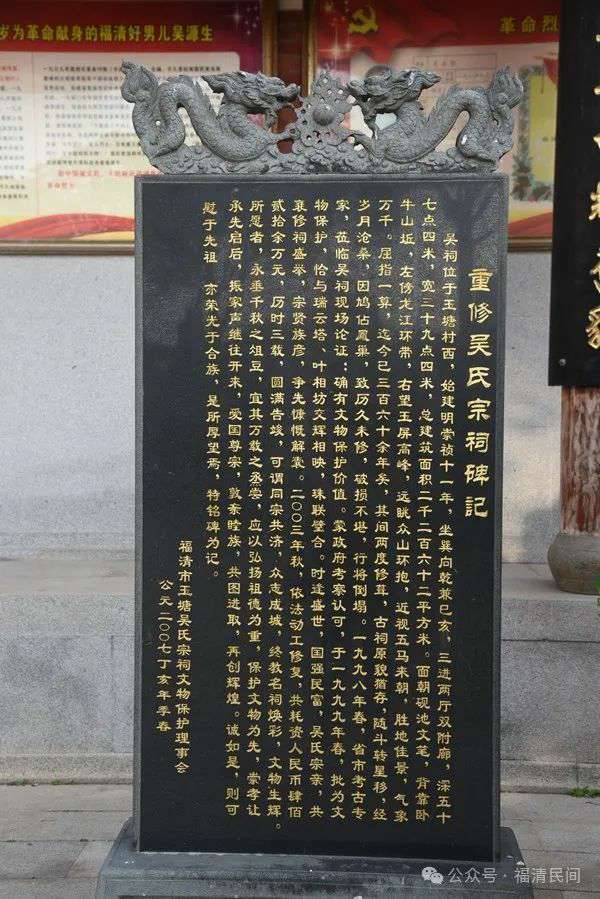 岁为革命献身的福清好男儿吴源生
革命烈
重修吴氏宗祠碑记
吴祠位于玉塘村西，始建明崇祯十一年，坐巽向乾兼巳亥，三进两厅双附廊，深五十
七点四米，宽三十九点四米，总建筑面积二千二百六十二平方米。面朝砚池文笔，背靠卧
牛山坵，左傍龙江环带，右望玉屏高峰，远眺众山环抱，近视五马来朝，胜地佳景，气象
万千。屈指一算，迄今已三百六十余年矣，其间两度修葺，古祠原貌犹存，随斗转星移，经
岁月沧桑，因鸠佔凰巢，致历久未修，破损不堪，行将倒塌。一九九八年春，省市考古专
家，莅临吴祠现场论证：确有文物保护价值。蒙政府考察认可，于一九九九年春，批为文
物保护，恰与瑞云塔、叶相坊交辉相映，珠联璧合。时逢盛世，国强民富，吴氏宗亲，共
襄修祠盛举，宗贤族彦，争先慷慨解囊。二〇〇三年秋，依法动工修复，共耗资人民币肆佰
贰拾余万元，历时三载，圆满告竣，可谓同宗共济，众志成城，终教名祠焕彩，文物生辉。
所愿者，永垂千秋之俎豆，宜其万载之烝尝，应以弘扬祖德为重，保护文物为先，崇孝让
承先启后，振家声继往开来，爱国尊宗，敦亲睦族，共图进取，再创辉煌。诚如是，则可
慰于先祖，亦荣光于合族，是所厚望焉，特铭碑为记。
福清市玉塘吴氏宗祠文物保护理事会
公元二〇〇七丁亥年季春
公众号·福清民间